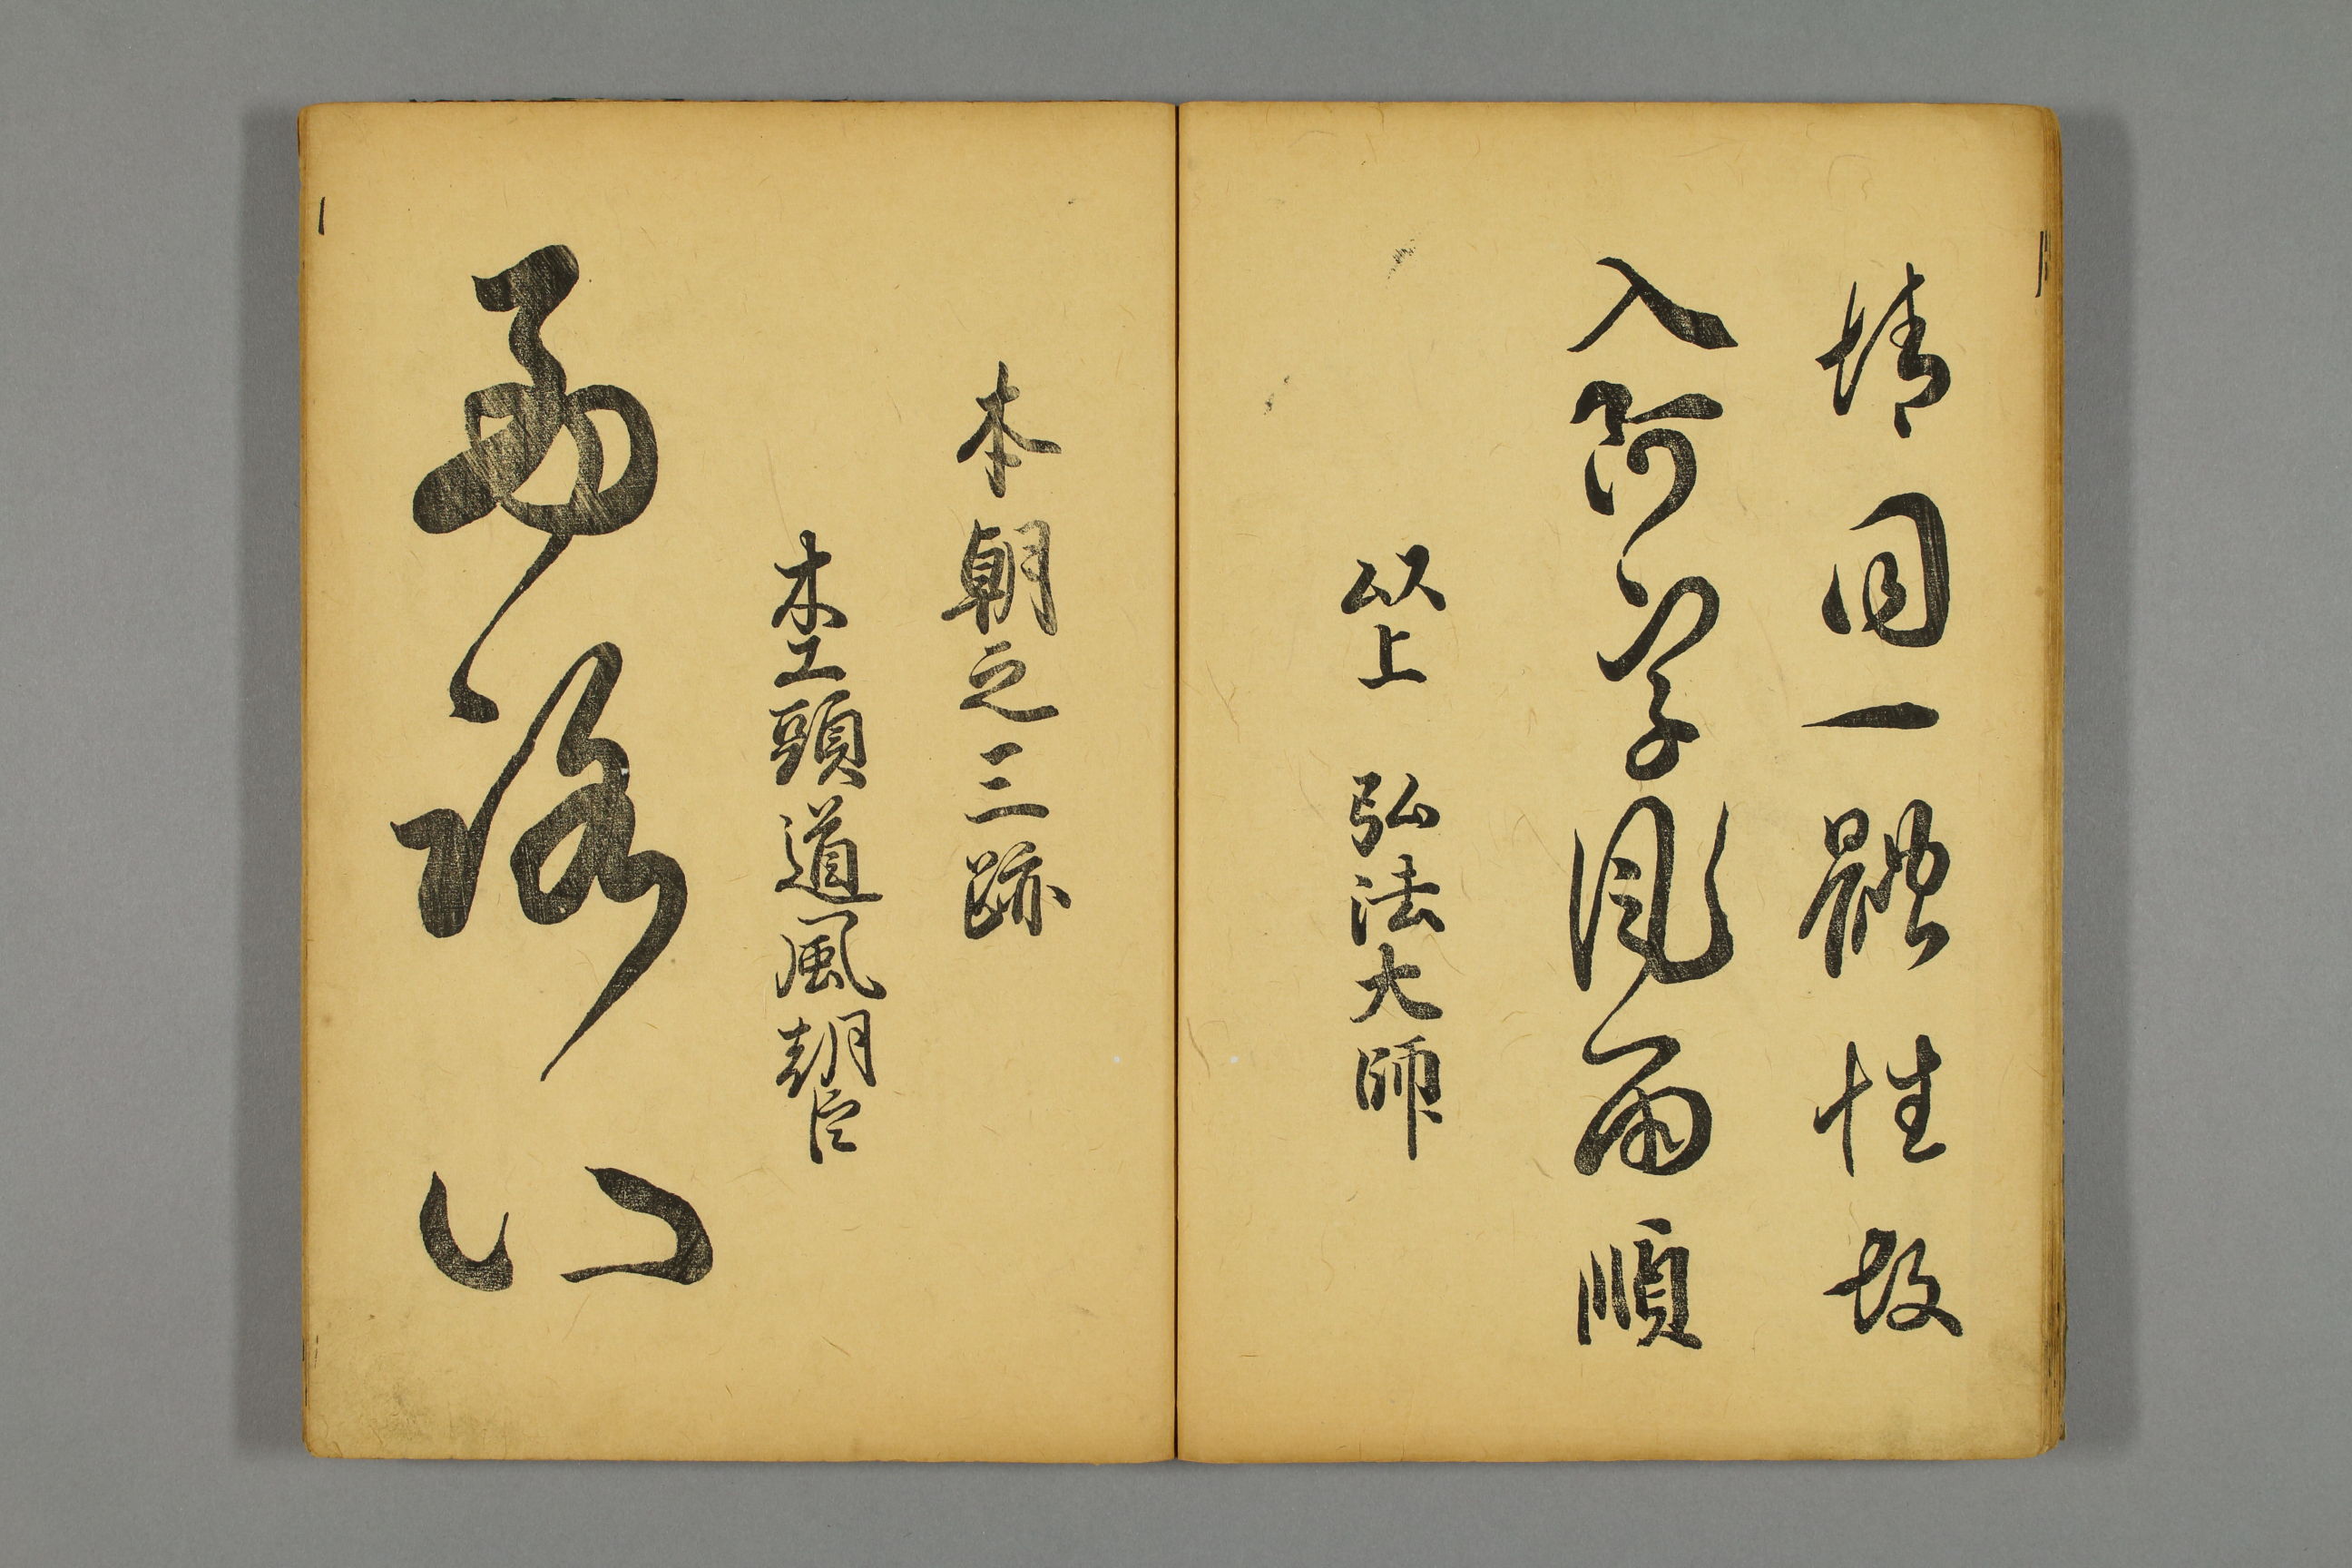 情同一體性故
入阿字風雨順
以上 弘法大師
本朝之三跡
木工頭道風朝臣
露